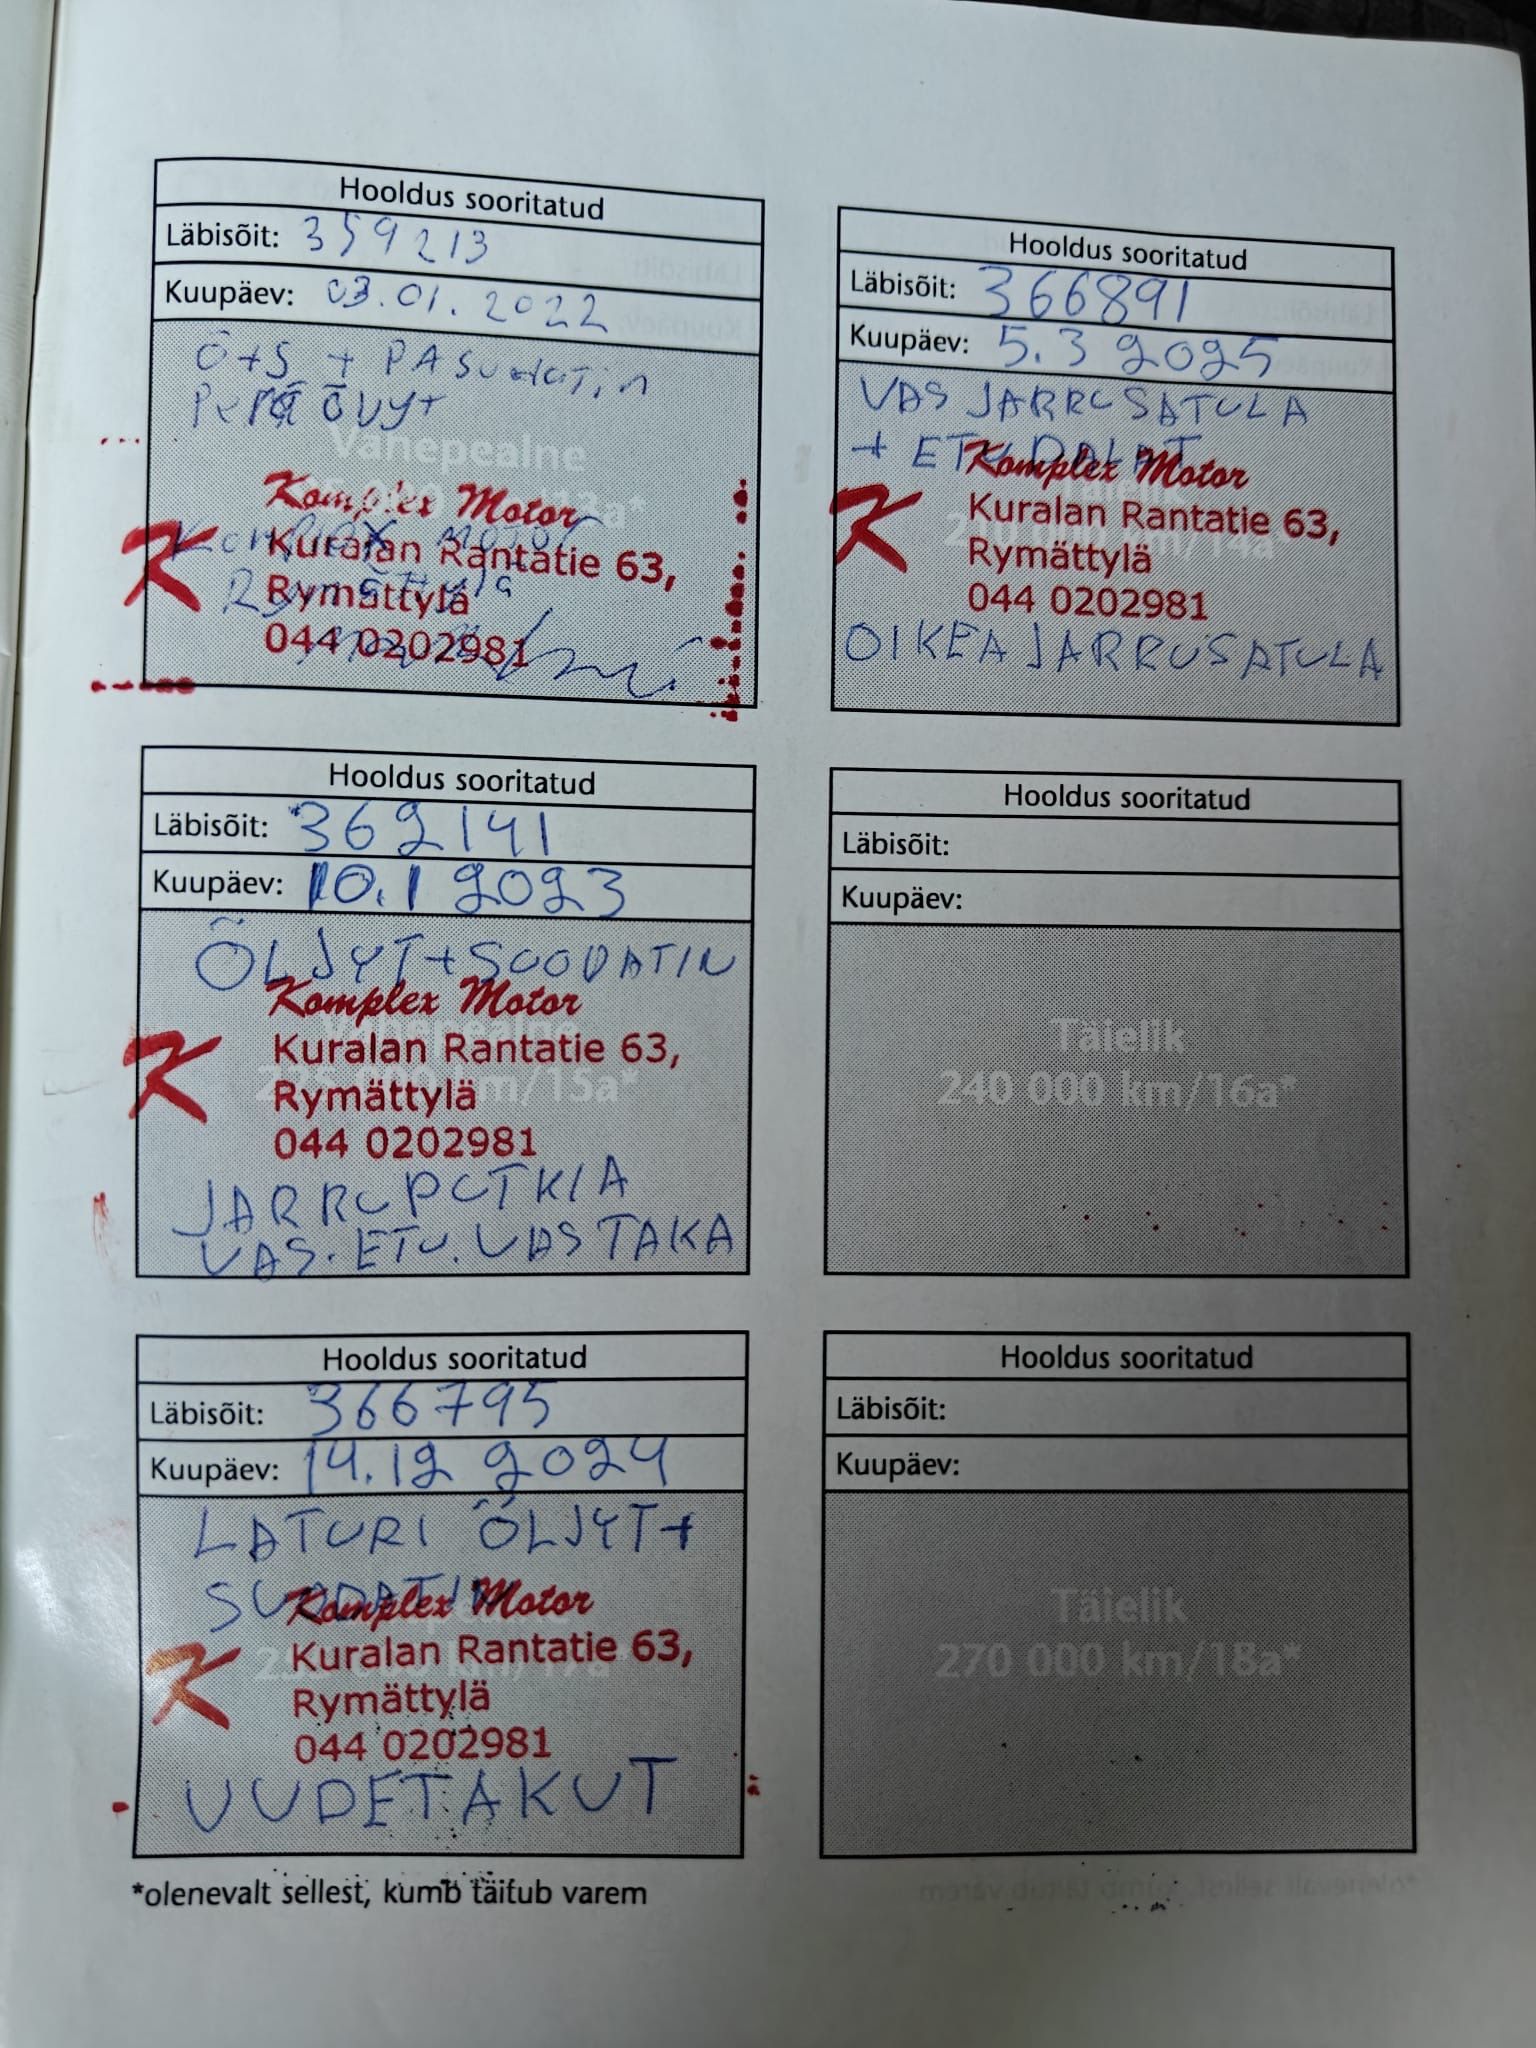 Hooldus sooritatud
Läbisõit: 359213
Kuupäev: 03.01.2022
Ö+S +
Perä
Vahepealne
Komplex Motor
Kuralan Rantatie 63,
Rymättylä
044 0202981
Hooldus sooritatud
Läbisõit: 366891
Kuupäev: 5.3 2025
VAS JARRUSATULA
+ ETUPALAT
Komplex Motor
Täielik
Kuralan Rantatie 63,
Rymättylä
044 0202981
OIKEA JARRUSATULA
Hooldus sooritatud
Läbisõit: 362141
Kuupäev: 10.1 2023
ÖLJYT+SUODATIN
Komplex Motor
Vahepealne
Kuralan Rantatie 63,
km/15a*
Rymättylä
044 0202981
JARRUPUTKIA
VAS. ETU. VAS TAKA
Hooldus sooritatud
Läbisõit:
Kuupäev:
Täielik
240 000 km/16a*
Hooldus sooritatud
Läbisõit: 366795
Kuupäev: 14.12 2024
LATURI ÖLJYT+
SUODATIN
Komplex Motor
Kuralan Rantatie 63,
km/17a*
Rymättylä
044 0202981
UUDET AKUT
Hooldus sooritatud
Läbisõit:
Kuupäev:
Täielik
270 000 km/18a*
*olenevalt sellest, kumb täitub varem